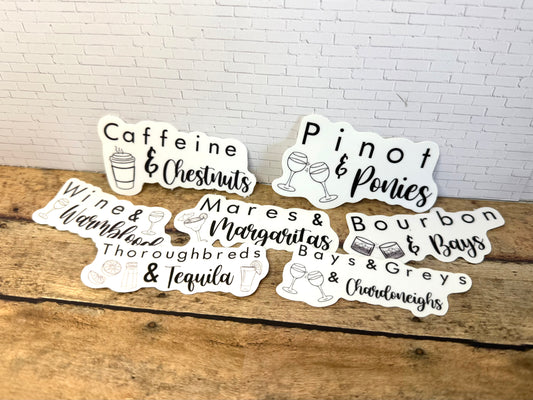 Caffeine
& Chestnuts
Pinot
& Ponies
Wine &
Warmblood
Mares &
Margaritas
Bourbon
& Bays
Thoroughbreds
& Tequila
Bays & Greys
& Chardoneighs